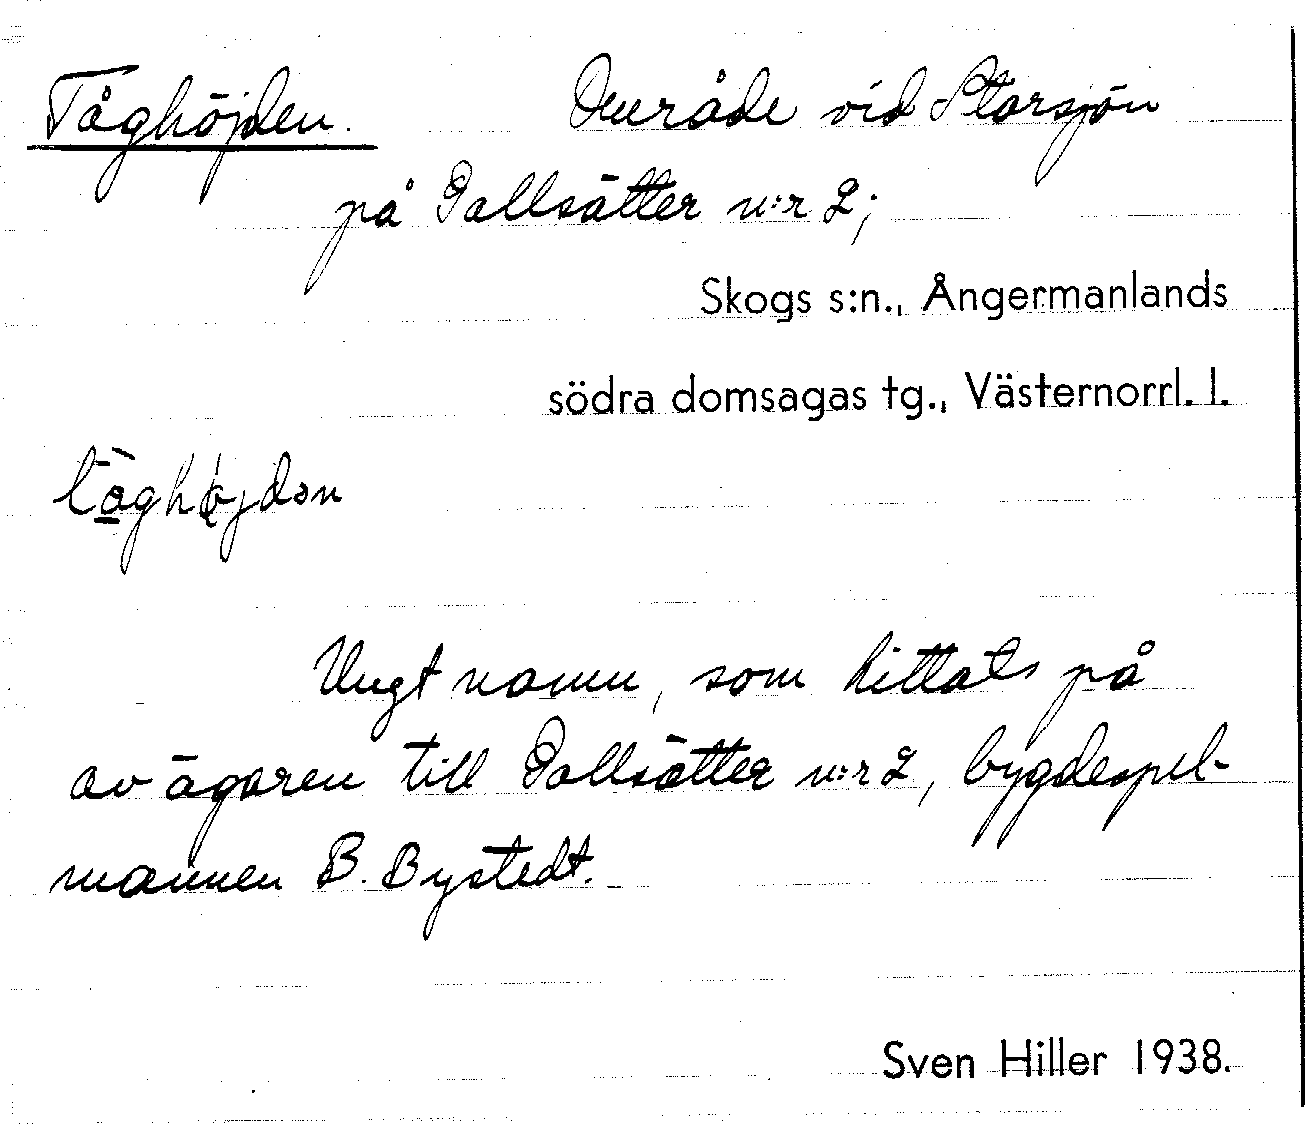 Tåghöjden. Område vid Storsjön
på Pallsätter n:r 2;
Skogs s:n., Ångermanlands
södra domsagas tg., Västernorrl. l.
tò̱ghøjdən
Ungt namn, som hittats på
av ägaren till Pallsätter n:r 2, bygdespel-
mannen B. Bystedt.
Sven Hiller 1938.